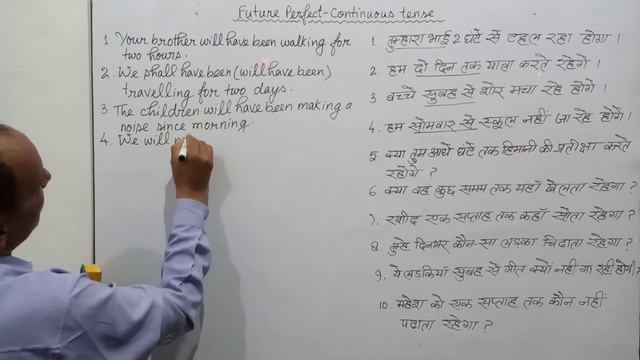 Future Perfect-Continuous tense
1. Your brother will have been walking for
two hours.
2. We shall have been (will have been)
travelling for two days.
3. The children will have been making a
noise since morning.
4. We will n
1. तुम्हारा भाई 2 घंटे से टहल रहा होगा ।
2. हम दो दिन तक यात्रा करते रहेंगे ।
3 बच्चे सुबह से शोर मचा रहे होंगे ।
4. हम सोमवार से स्कूल नहीं जा रहे होंगें ।
5. क्या तुम आधे घंटे तक हिमानी की प्रतीक्षा करते
रहोगे ?
6. क्या वह कुछ समय तक यहाँ खेलता रहेगा ?
7. रशीद एक सप्ताह तक कहाँ सोता रहेगा ?
8. तुम्हें दिनभर कौन सा लड़का चिढ़ाता रहेगा ?
9. ये लडकियाँ सुबह से गीत क्यों नहीं गा रही होंगी ?
10. महेश को एक सप्ताह तक कौन नहीं
पढाता रहेगा ?